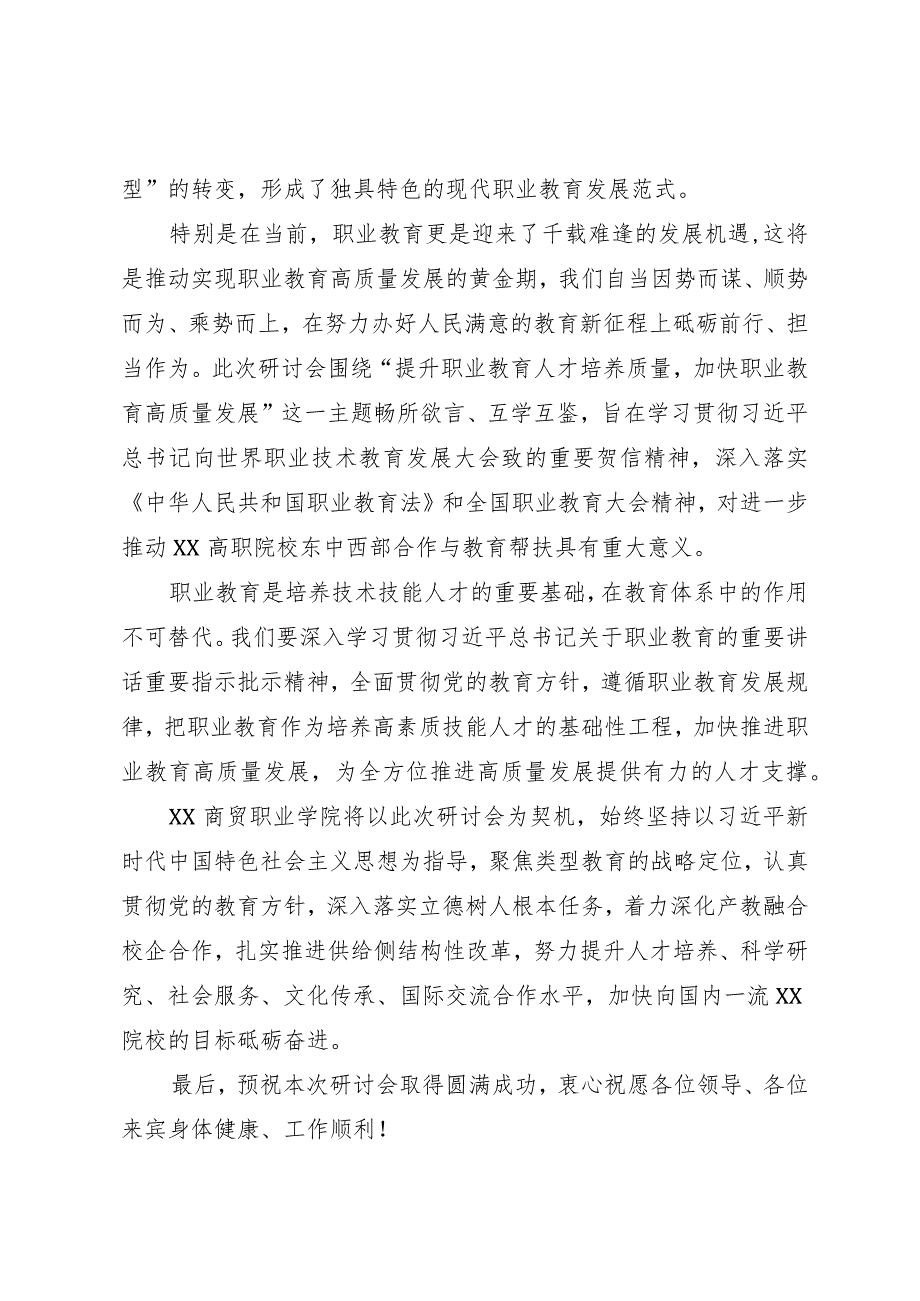 型”的转变，形成了独具特色的现代职业教育发展范式。
特别是在当前，职业教育更是迎来了千载难逢的发展机遇,这将
是推动实现职业教育高质量发展的黄金期，我们自当因势而谋、顺势
而为、乘势而上，在努力办好人民满意的教育新征程上砥砺前行、担
当作为。此次研讨会围绕“提升职业教育人才培养质量，加快职业教
育高质量发展”这一主题畅所欲言、互学互鉴，旨在学习贯彻习近平
总书记向世界职业技术教育发展大会致的重要贺信精神，深入落实
《中华人民共和国职业教育法》和全国职业教育大会精神，对进一步
推动 XX 高职院校东中西部合作与教育帮扶具有重大意义。
职业教育是培养技术技能人才的重要基础，在教育体系中的作用
不可替代。我们要深入学习贯彻习近平总书记关于职业教育的重要讲
话重要指示批示精神，全面贯彻党的教育方针，遵循职业教育发展规
律，把职业教育作为培养高素质技能人才的基础性工程，加快推进职
业教育高质量发展，为全方位推进高质量发展提供有力的人才支撑。
XX 商贸职业学院将以此次研讨会为契机，始终坚持以习近平新
时代中国特色社会主义思想为指导，聚焦类型教育的战略定位，认真
贯彻党的教育方针，深入落实立德树人根本任务，着力深化产教融合
校企合作，扎实推进供给侧结构性改革，努力提升人才培养、科学研
究、社会服务、文化传承、国际交流合作水平，加快向国内一流 XX
院校的目标砥砺奋进。
最后，预祝本次研讨会取得圆满成功，衷心祝愿各位领导、各位
来宾身体健康、工作顺利！